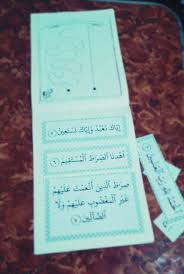 إِيَّاكَ نَعْبُدُ وَإِيَّاكَ نَسْتَعِينُ ٥
اهْدِنَا الصِّرَاطَ الْمُسْتَقِيمَ ٦
صِرَاطَ الَّذِينَ أَنْعَمْتَ عَلَيْهِمْ
غَيْرِ الْمَغْضُوبِ عَلَيْهِمْ وَلَا
الضَّالِّينَ ٧